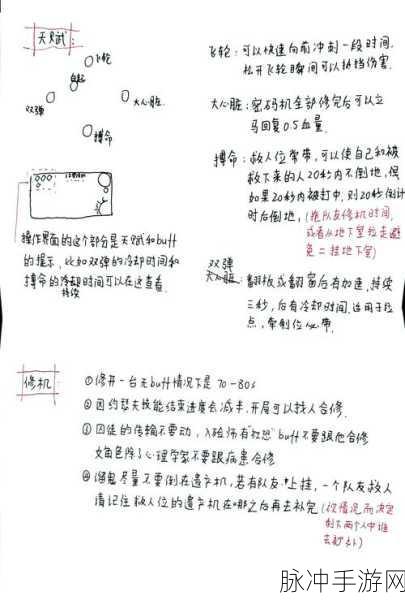 天赋:
飞轮
双弹
大心脏
搏命
操作界面的这个部分是天赋和buff
的提示,比如双弹的冷却时间和
搏命的持续时间可以在这查看.
飞轮:可以快速向前冲刺一段时间,
松开飞轮瞬间可以抵挡伤害.
大心脏:密码机全部修完后可以立
马回复0.5血量.
搏命:救人位常带,可以使自己和被
救下来的人20秒内不倒地,但
如果20秒内被打中,则20秒倒计
时后倒地,(拖队友修机时间,
或者从地下室拉走避
免二挂地下室)
双弹
翻板或翻窗后有加速,持续
三秒,后有冷却时间.适用于拉
点,牵制位必带.
修机:
①修开一台无buff情况下是70-80s
②因约瑟夫技能结束进度会减半,开局可以找人合修.
③囚徒的传输不要动,入殓师有"救恐"buff不要跟他合修
女角色除了心理学家不要跟病患合修
④溜鬼尽量不要倒在遗产机,若有队友上挂,一个队友救人
请记住救人位的遗产机在哪之后再去补完(视情况而决定
剩下两个人中谁
去补)
脉冲手游网